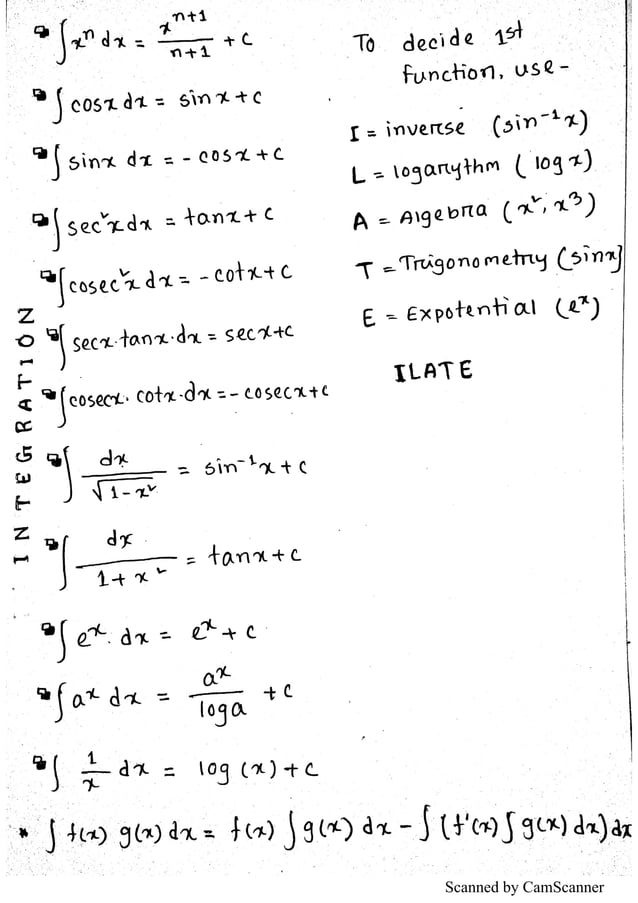 ∫xⁿ dx = xⁿ⁺¹/n+1 + c
∫cosx dx = sinx + c
∫sinx dx = - cosx + c
∫sec²x dx = tanx + c
∫cosec²x dx = - cotx + c
∫secx.tanx.dx = secx + c
∫cosecx. cotx.dx = - cosecx + c
∫dx/√1-x² = sin⁻¹x + c
∫dx/1+x² = tanx + c
∫eˣ. dx = eˣ + c
∫aˣ dx = aˣ/loga + c
∫1/x dx = log (x) + c
* ∫f(x) g(x) dx = f(x) ∫g(x) dx - ∫(f'(x) ∫g(x) dx) dx
INTEGRATION
To decide 1st
function, use -
I = inverse (sin⁻¹x)
L = logarythm (log x)
A = Algebra (x², x³)
T = Trigonometry (sinx]
E = Expotential (eˣ)
ILATE
Scanned by CamScanner